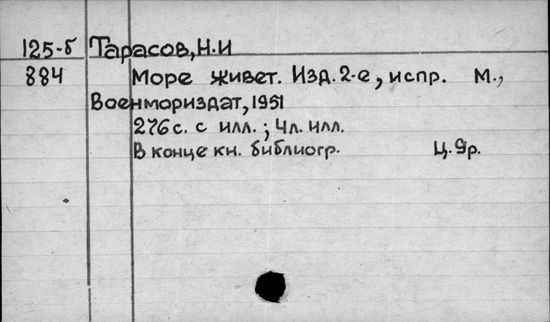 125-б Тарасов, Н.И
884 Море живет. Изд. 2-е, испр. М.,
Военмориздат, 1951
276 с. с илл.; 4л. илл.
В конце кн. библиогр. Ц. 9р.